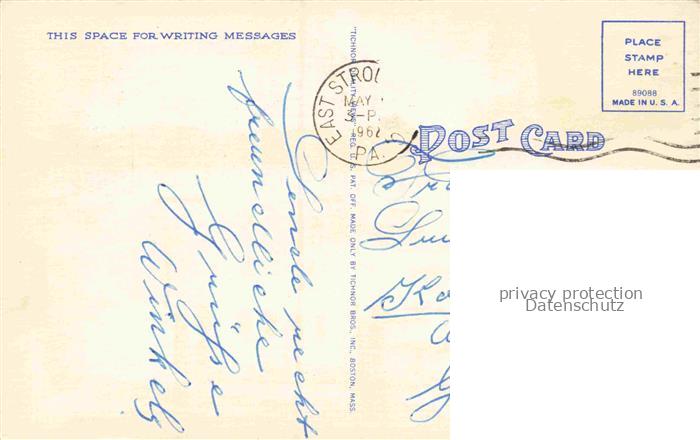 THIS SPACE FOR WRITING MESSAGES
Sende recht
freundliche
Grüße
Winkels
"TICHNOR QUALITY VIEWS," REG. U. S. PAT. OFF. MADE ONLY BY TICHNOR BROS., INC., BOSTON, MASS.
EAST STROU
MAY
3-P
1962
PA.
POST CARD
PLACE
STAMP
HERE
89088
MADE IN U. S. A.
privacy protection
Datenschutz